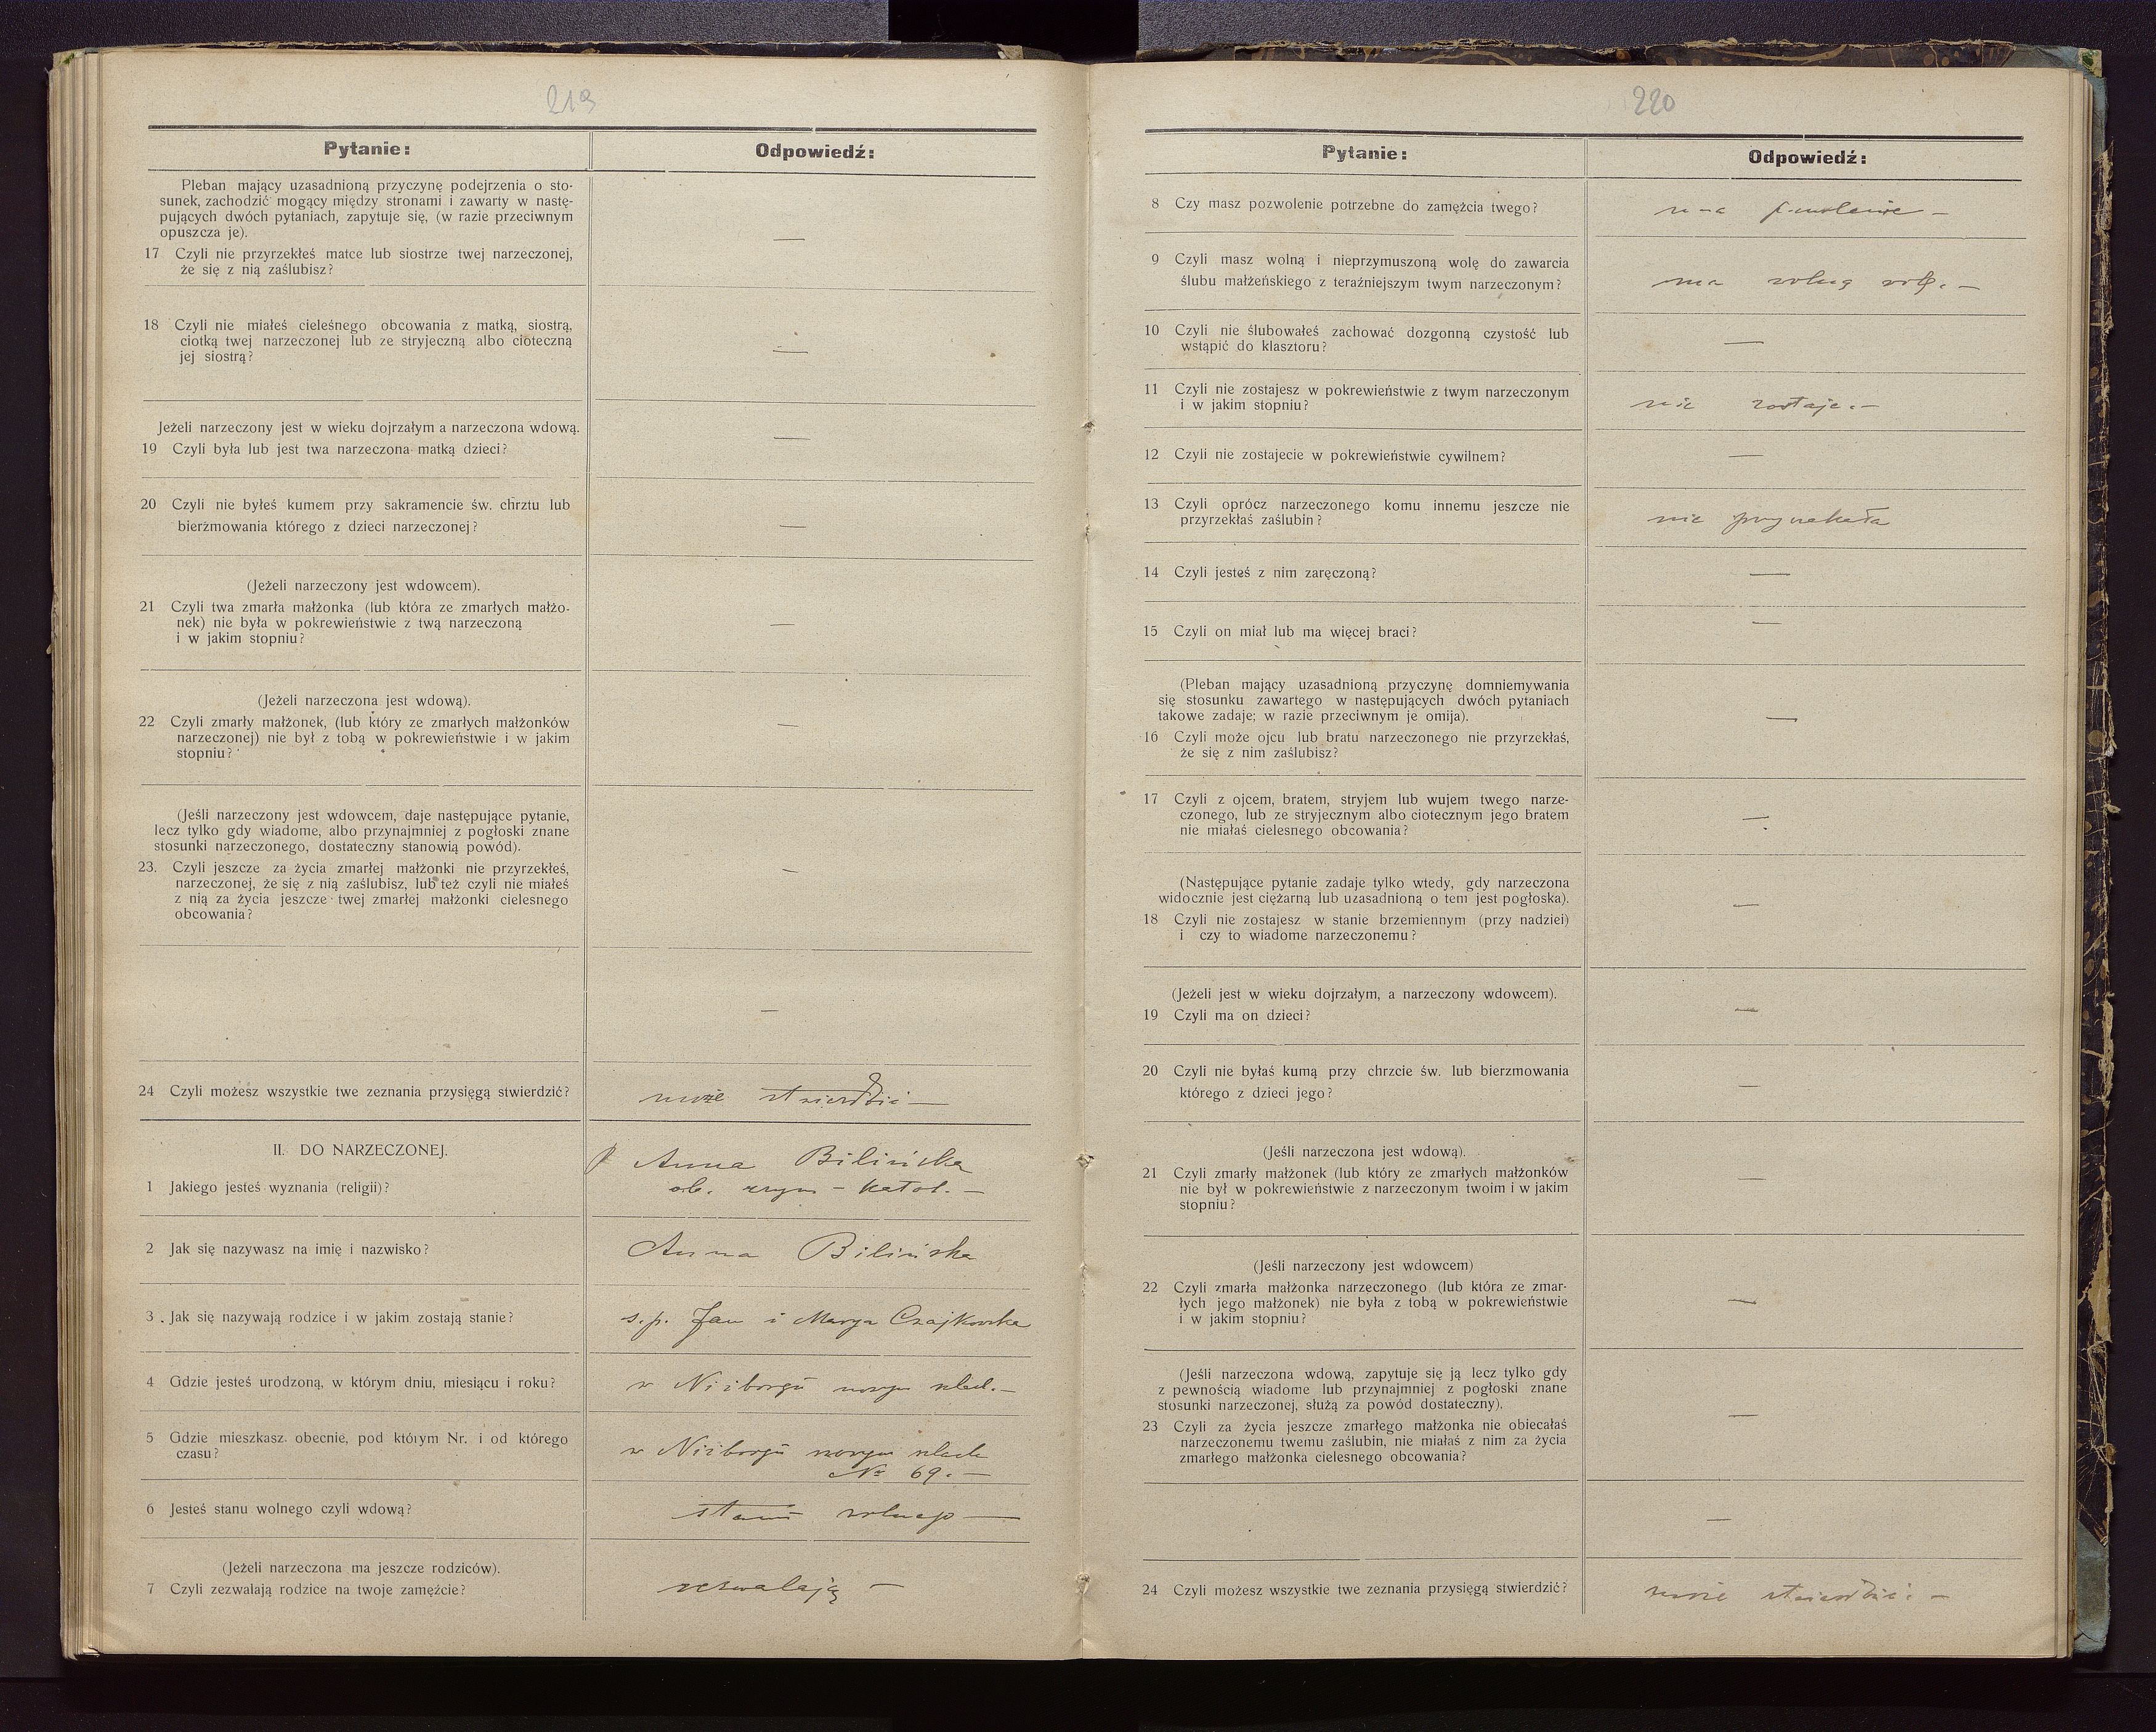 219
Pytanie:
Odpowiedź:
Pleban mający uzasadnioną przyczynę podejrzenia o sto-
sunek, zachodzić mogący między stronami i zawarty w nastę-
pujących dwóch pytaniach, zapytuje się, (w razie przeciwnym
opuszcza je).
17 Czyli nie przyrzekłeś matce lub siostrze twej narzeczonej,
że się z nią zaślubisz?
—
18 Czyli nie miałeś cieleśnego obcowania z matką, siostrą,
ciotką twej narzeczonej lub ze stryjeczną albo cioteczną
jej siostrą?
—
Jeżeli narzeczony jest w wieku dojrzałym a narzeczona wdową.
19 Czyli była lub jest twa narzeczona matką dzieci?
—
20 Czyli nie byłeś kumem przy sakramencie św. chrztu lub
bierzmowania którego z dzieci narzeczonej?
—
(Jeżeli narzeczony jest wdowcem).
21 Czyli twa zmarła małżonka (lub która ze zmarłych małżo-
nek) nie była w pokrewieństwie z twą narzeczoną
i w jakim stopniu?
—
(Jeżeli narzeczona jest wdową).
22 Czyli zmarły małżonek, (lub który ze zmarłych małżonków
narzeczonej) nie był z tobą w pokrewieństwie i w jakim
stopniu?
—
(Jeśli narzeczony jest wdowcem, daje następujące pytanie,
lecz tylko gdy wiadome, albo przynajmniej z pogłoski znane
stosunki narzeczonego, dostateczny stanowią powód).
23. Czyli jeszcze za życia zmarłej małżonki nie przyrzekłeś,
narzeczonej, że się z nią zaślubisz, lub też czyli nie miałeś
z nią za życia jeszcze twej zmarłej małżonki cielesnego
obcowania?
—
—
24 Czyli możesz wszystkie twe zeznania przysięgą stwierdzić?
może stwierdzić —
II. DO NARZECZONEJ.
Anna Bilińska
1 Jakiego jesteś wyznania (religii)?
ob. rzym - katol. —
2 Jak się nazywasz na imię i nazwisko?
Anna Bilińska
3. Jak się nazywają rodzice i w jakim zostają stanie?
s. p. Jan i Marya Czajkowska
4 Gdzie jesteś urodzoną, w którym dniu, miesiącu i roku?
w Niżborgu nowym —
5 Gdzie mieszkasz obecnie, pod którym Nr. i od którego
czasu?
w Niżborgu nowym
No 69. —
6 Jesteś stanu wolnego czyli wdową?
stanu wolnego —
(Jeżeli narzeczona ma jeszcze rodziców).
7 Czyli zezwalają rodzice na twoje zamęźcie?
zezwalają —
220
Pytanie:
Odpowiedź:
8 Czy masz pozwolenie potrzebne do zamężcia twego?
ma pozwolenie —
9 Czyli masz wolną i nieprzymuszoną wolę do zawarcia
ślubu małżeńskiego z teraźniejszym twym narzeczonym?
ma wolną wolę. —
10 Czyli nie ślubowałeś zachować dozgonną czystość lub
wstąpić do klasztoru?
—
11 Czyli nie zostajesz w pokrewieństwie z twym narzeczonym
i w jakim stopniu?
nie zostaje. —
12 Czyli nie zostajecie w pokrewieństwie cywilnem?
—
13 Czyli oprócz narzeczonego komu innemu jeszcze nie
przyrzekłaś zaślubin?
nie przyrzekała
14 Czyli jesteś z nim zaręczoną?
—
15 Czyli on miał lub ma więcej braci?
—
(Pleban mający uzasadnioną przyczynę domniemywania
się stosunku zawartego w następujących dwóch pytaniach
takowe zadaje; w razie przeciwnym je omija).
16 Czyli może ojcu lub bratu narzeczonego nie przyrzekłaś,
że się z nim zaślubisz?
—
17 Czyli z ojcem, bratem, stryjem lub wujem twego narze-
czonego, lub ze stryjecznym albo ciotecznym jego bratem
nie miałaś cielesnego obcowania?
—
(Następujące pytanie zadaje tylko wtedy, gdy narzeczona
widocznie jest ciężarną lub uzasadnioną o tem jest pogłoska).
18 Czyli nie zostajesz w stanie brzemiennym (przy nadziei)
i czy to wiadome narzeczonemu?
—
(Jeżeli jest w wieku dojrzałym, a narzeczony wdowcem).
19 Czyli ma on dzieci?
—
20 Czyli nie byłaś kumą przy chrzcie św. lub bierzmowania
którego z dzieci jego?
—
(Jeśli narzeczona jest wdową).
21 Czyli zmarły małżonek (lub który ze zmarłych małżonków
nie był w pokrewieństwie z narzeczonym twoim i w jakim
stopniu?
—
(Jeśli narzeczony jest wdowcem)
22 Czyli zmarła małżonka narzeczonego (lub która ze zmar-
łych jego małżonek) nie była z tobą w pokrewieństwie
i w jakim stopniu?
—
(Jeśli narzeczona wdową, zapytuje się ją lecz tylko gdy
z pewnością wiadome lub przynajmniej z pogłoski znane
stosunki narzeczonej, służą za powód dostateczny).
23 Czyli za życia jeszcze zmarłego małżonka nie obiecałaś
narzeczonemu twemu zaślubin, nie miałaś z nim za życia
zmarłego małżonka cielesnego obcowania?
—
—
24 Czyli możesz wszystkie twe zeznania przysięgą stwierdzić?
może stwierdzić. —